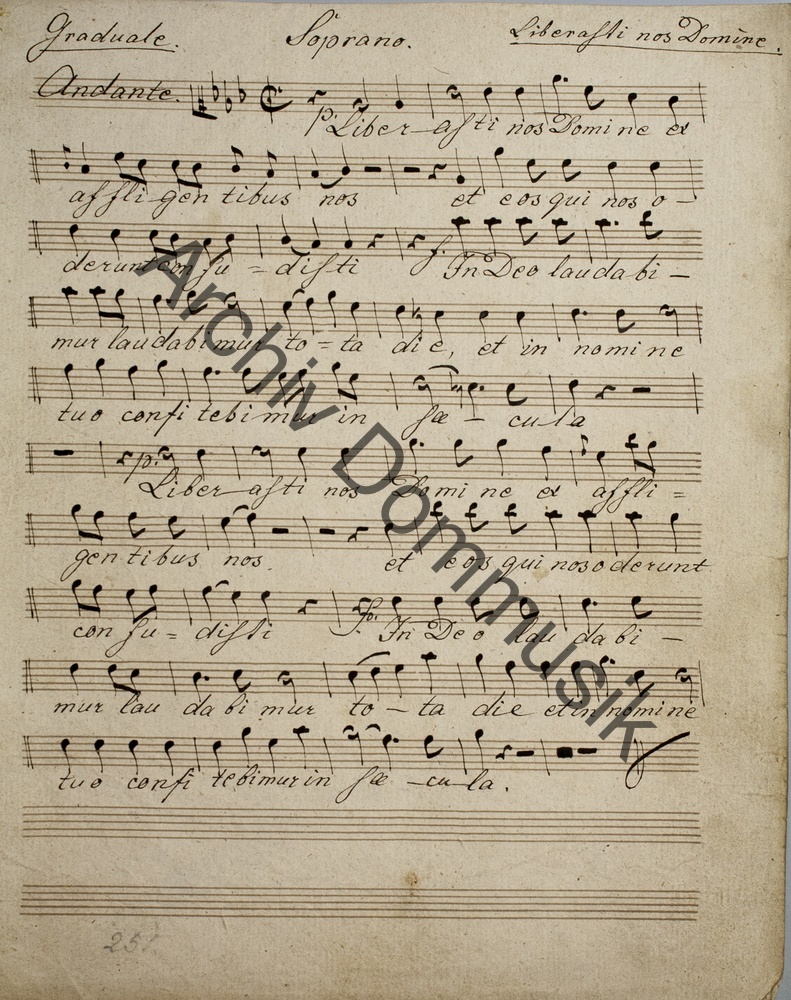 Graduale. Soprano. Liberasti nos Domine.
Andante.
p: Liber-asti nos Domine et
affligentibus nos et eos qui nos o-
derunt confu=disti f. In Deo laudabi-
mur laudabimur to=ta die, et in nomine
tuo confitebimur in sæ-cula
p: Liber-asti nos Domine et affli=
gentibus nos. et eos qui nos oderunt
confu=disti fo. In Deo lau dabi-
mur lau dabimur to-ta die et in nomine
tuo confitebimur in sæ-cula.
251.
Archiv Dommusik